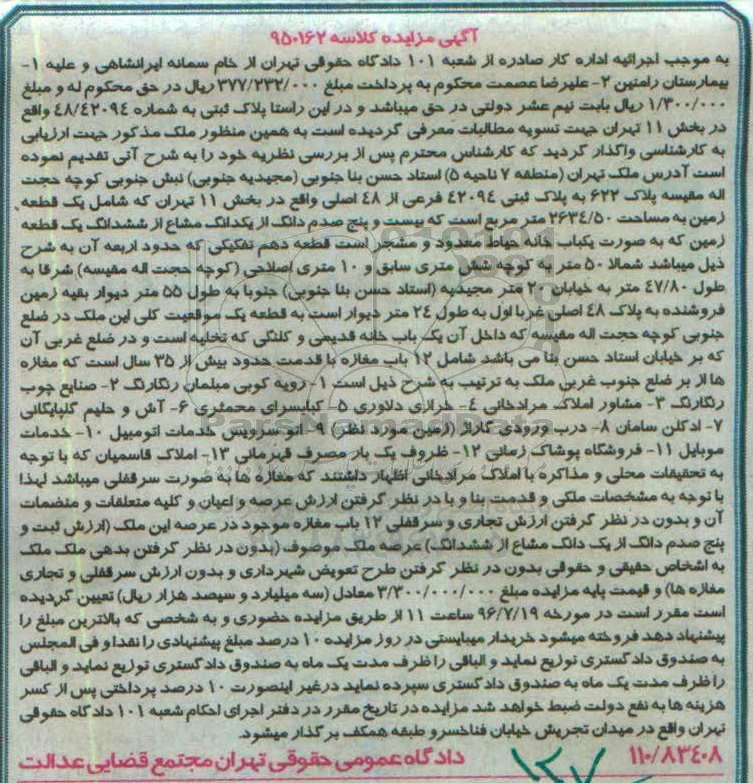 آگهی مزایده کلاسه ۹۵۰۱۶۲
به موجب اجرائیه اداره کار صادره از شعبه ۱۰۱ دادگاه حقوقی تهران از خانم سمانه ایرانشاهی و علیه ۱-
بیمارستان رامتین ۲- علیرضا عصمت محکوم به پرداخت مبلغ ۳۷۷/۲۳۲/۰۰۰ ریال در حق محکوم له و مبلغ
۱/۳۰۰/۰۰۰ ریال بابت نیم عشر دولتی در حق میباشد و در این راستا پلاک ثبتی به شماره ۴۸/۴۲۰۹۴ واقع
در بخش ۱۱ تهران جهت تسویه مطالبات معرفی گردیده است به همین منظور ملک مذکور جهت ارزیابی
به کارشناسی واگذار گردید که کارشناس محترم پس از بررسی نظریه خود را به شرح آتی تقدیم نموده
است آدرس ملک تهران (منطقه ۷ ناحیه ۵) استاد حسن بنا جنوبی (مجیدیه جنوبی) نبش جنوبی کوچه حجت
اله مقیسه پلاک ۶۲۲ به پلاک ثبتی ۴۲۰۹۴ فرعی از ۴۸ اصلی واقع در بخش ۱۱ تهران که شامل یک قطعه
زمین به مساحت ۲۶۳۴/۵۰ متر مربع است که بیست و پنج صدم دانگ از یکدانگ مشاع از ششدانگ یک قطعه
زمین که به صورت یکباب خانه حیاط معدود و مشجر است قطعه دهم تفکیکی که حدود اربعه آن به شرح
ذیل میباشد شمالا ۵۰ متر به کوچه شش متری سابق و ۱۰ متری اصلاحی (کوچه حجت اله مقیسه) شرقا به
طول ۴۷/۸۰ متر به خیابان ۲۰ متر مجیدیه (استاد حسن بنا جنوبی) جنوبا به طول ۵۵ متر دیوار بقیه زمین
فروشنده به پلاک ۴۸ اصلی غربا اول به طول ۲۴ متر دیوار است به قطعه یک موقعیت کلی این ملک در ضلع
جنوبی کوچه حجت اله مقیسه که داخل آن یک باب خانه قدیمی و کلنگی که تخلیه است و در ضلع غربی آن
که بر خیابان استاد حسن بنا می باشد شامل ۱۲ باب مغازه با قدمت حدود بیش از ۳۵ سال است که مغازه
ها از بر ضلع جنوب غربی ملک به ترتیب به شرح ذیل است ۱- رویه کوبی مبلمان رنگارنگ ۲- صنایع چوب
رنگارنگ ۳- مشاور املاک مرادخانی ۴- خرازی دلاوری ۵- کبابسرای محمثری ۶- آش و حلیم گلپایگانی
۷- ادکلن سامان ۸- درب ورودی گاراژ (زمین مورد نظر) ۹- اتو سرویس خدمات اتومبیل ۱۰- خدمات
موبایل ۱۱- فروشگاه پوشاک زمانی ۱۲- ظروف یک بار مصرف قهرمانی ۱۳- املاک قاسمیان که با توجه
به تحقیقات محلی و مذاکره با املاک مرادخانی اظهار داشتند که مغازه ها به صورت سرقفلی میباشد لهذا
با توجه به مشخصات ملکی و قدمت بنا و با در نظر گرفتن ارزش عرصه و اعیان و کلیه متعلقات و منضمات
آن و بدون در نظر گرفتن ارزش تجاری و سرقفلی ۱۲ باب مغازه موجود در عرصه این ملک (ارزش ثبت و
پنج صدم دانگ از یک دانگ مشاع از ششدانگ) عرصه ملک موصوف (بدون در نظر گرفتن بدهی ملک ملک
به اشخاص حقیقی و حقوقی بدون در نظر گرفتن طرح تعویض شهرداری و بدون ارزش سرقفلی و تجاری
مغازه ها) و قیمت پایه مزایده مبلغ ۳/۳۰۰/۰۰۰/۰۰۰ معادل (سه میلیارد و سیصد هزار ریال) تعیین گردیده
است مقرر است در مورخه ۹۶/۷/۱۹ ساعت ۱۱ از طریق مزایده حضوری و به شخصی که بالاترین مبلغ را
پیشنهاد دهد فروخته میشود خریدار میبایستی در روز مزایده ۱۰ درصد مبلغ پیشنهادی را نقدا و فی المجلس
به صندوق دادگستری تودیع نماید و الباقی را ظرف مدت یک ماه به صندوق دادگستری توزیع نماید و الباقی
را ظرف مدت یک ماه به صندوق دادگستری سپرده نماید درغیر اینصورت ۱۰ درصد پرداختی پس از کسر
هزینه ها به نفع دولت ضبط خواهد شد مزایده در تاریخ مقرر در دفتر اجرای احکام شعبه ۱۰۱ دادگاه حقوقی
تهران واقع در میدان تجریش خیابان فناخسرو طبقه همکف برگذار میشود.
۱۱۰/۸۳۴۰۸ دادگاه عمومی حقوقی تهران مجتمع قضایی عدالت